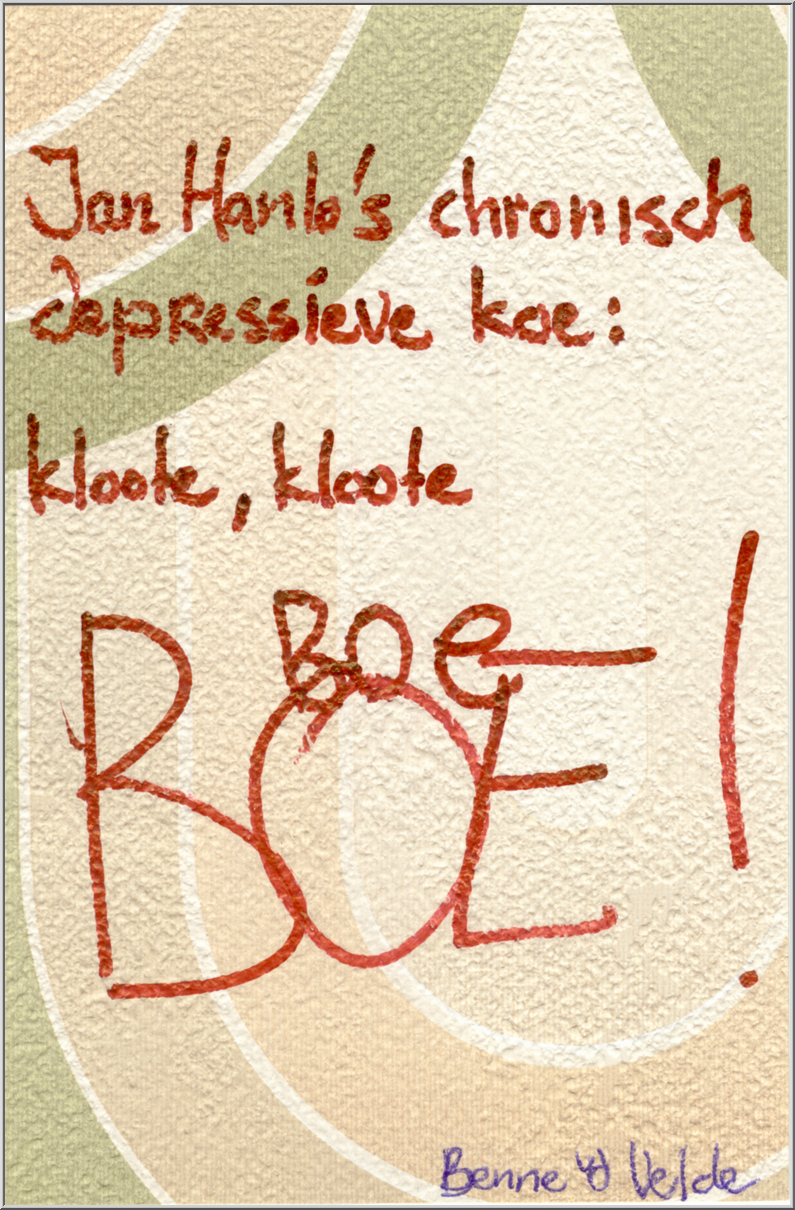 Jan Hanlo's chronisch
depressieve koe:
kloote, kloote
Boe
BOE!
Benne vd Velde